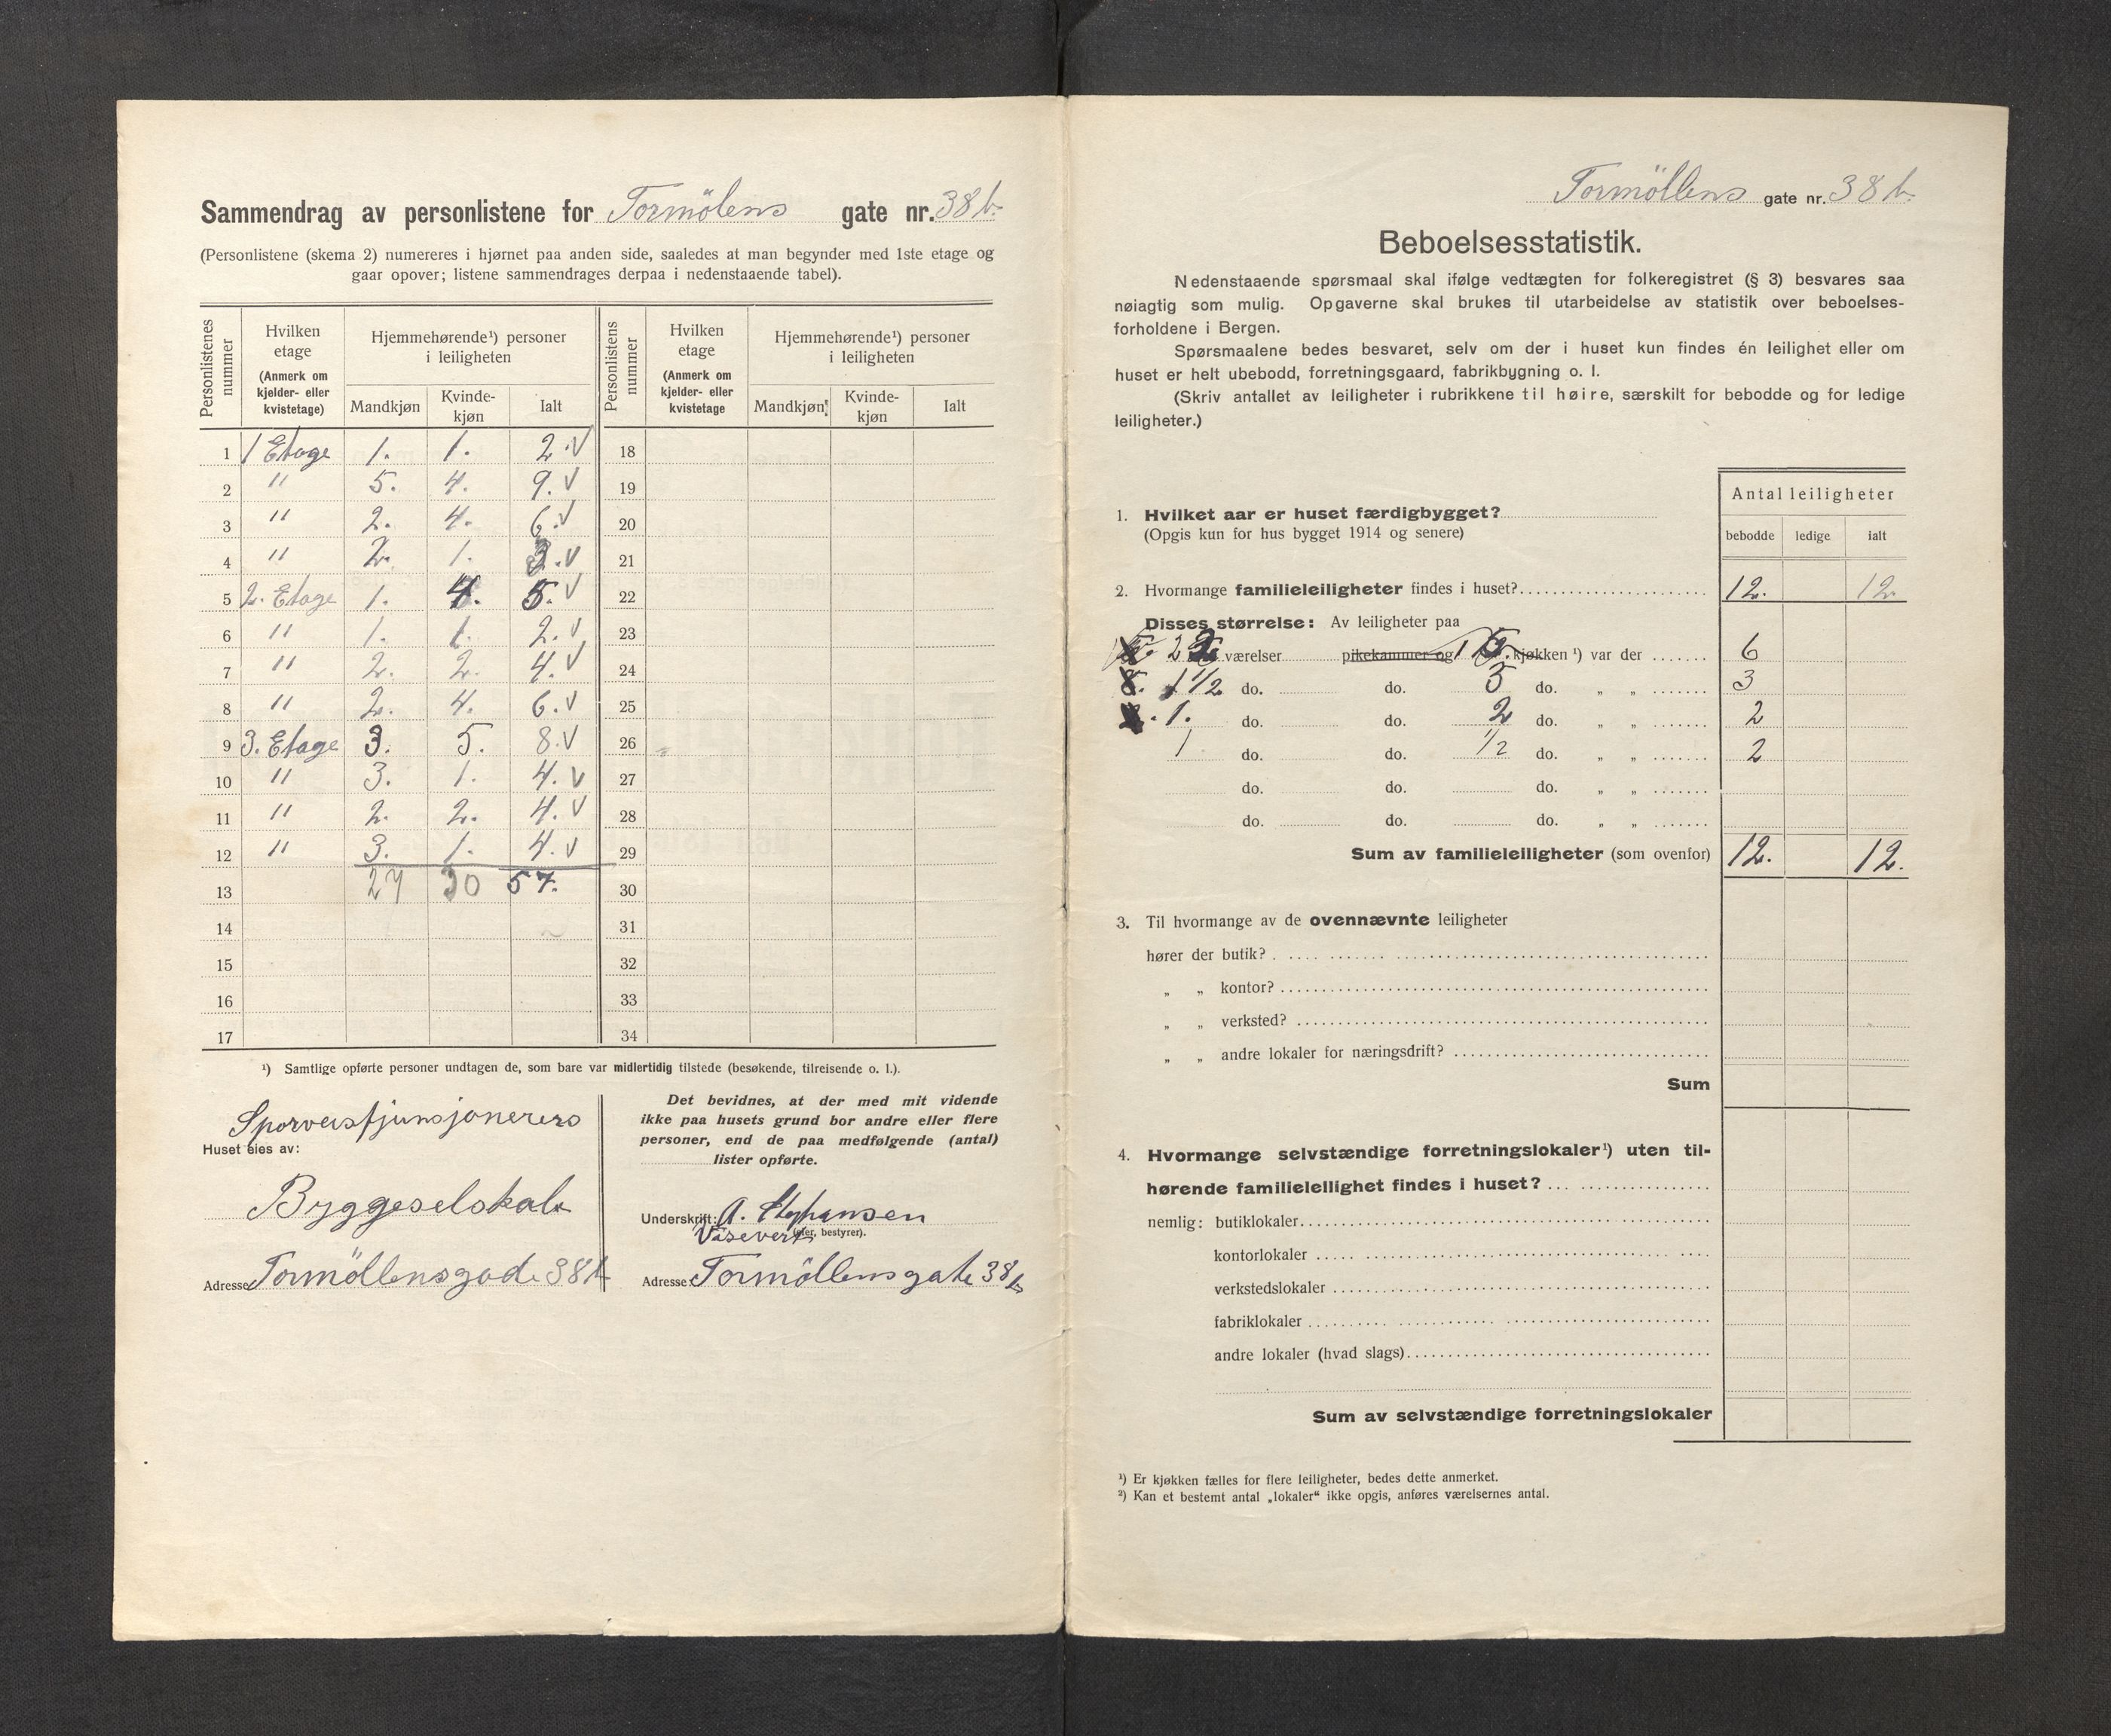 Sammendrag av personlistene for Tormölens gate nr. 38 b.
(Personlistene (skema 2) numereres i hjørnet paa anden side, saaledes at man begynder med 1ste etage og
gaar opover; listene sammendrages derpaa i nedenstaaende tabel).
Personlistenes nummer | Hvilken etage (Anmerk om kjelder- eller kvistetage) | Hjemmehørende¹) personer i leiligheten | Personlistens nummer | Hvilken etage (Anmerk om kjelder- eller kvistetage | Hjemmehørende¹) personer i leiligheten
Mandkjøn | Kvinde-kjøn | Ialt | Mandkjøn | Kvinde-kjøn | Ialt
1 1 Etage 1. 1. 2. V 18
2 " 5. 4. 9. V 19
3 " 2. 4. 6. V 20
4 " 2. 1. 3. V 21
5 2. Etage 1. 4. 5. V 22
6 " 1. 1. 2. V 23
7 " 2. 2. 4. V 24
8 " 2. 4. 6. V 25
9 3. Etage 3. 5. 8. V 26
10 " 3. 1. 4. V 27
11 " 2. 2. 4. V 28
12 " 3. 1. 4. V 29
13 27 30 57. 30
14 31
15 32
16 33
17 34
¹) Samtlige opførte personer undtagen de, som bare var midlertidig tilstede (besøkende, tilreisende o. l.).
Sporveisfjunsjonerers
Huset eies av:
Byggeselskab
Adresse Tormöllensgade 38 b
Det bevidnes, at der med mit vidende
ikke paa husets grund bor andre eller flere
personer, end de paa medfølgende (antal)
lister opførte.
Underskrift: A. Stephansen
(eier, bestyrer).
Adresse Tormöllensgate 38 b
Tormöllens gate nr. 38 b.
Beboelsesstatistik.
Nedenstaaende spørsmaal skal ifølge vedtægten for folkeregistret (§ 3) besvares saa
nøiagtig som mulig. Opgaverne skal brukes til utarbeidelse av statistik over beboelses-
forholdene i Bergen.
Spørsmaalene bedes besvaret, selv om der i huset kun findes én leilighet eller om
huset er helt ubebodd, forretningsgaard, fabrikbygning o. l.
(Skriv antallet av leiligheter i rubrikkene til høire, særskilt for bebodde og for ledige
leiligheter.)
Antal leiligheter
bebodde ledige ialt
1. Hvilket aar er huset færdigbygget?
(Opgis kun for hus bygget 1914 og senere)
2. Hvormange familieleiligheter findes i huset? 12. 12.
Disses størrelse: Av leiligheter paa
2 værelser pikekammer og 1 kjøkken ¹) var der 6
1 1/2 do. do. do. " " 3
1. do. do. 2 do. " " 2
1 do. do. 1/2 do. " " 2
do. do. do. " "
do. do. do. " "
Sum av familieleiligheter (som ovenfor) 12. 12.
3. Til hvormange av de ovennævnte leiligheter
hører der butik?
" " kontor?
" " verksted?
" " andre lokaler for næringsdrift?
Sum
4. Hvormange selvstændige forretningslokaler¹) uten til-
hørende familieleilighet findes i huset?
nemlig: butiklokaler
kontorlokaler
verkstedslokaler
fabriklokaler
andre lokaler (hvad slags)
Sum av selvstændige forretningslokaler
¹) Er kjøkken fælles for flere leiligheter, bedes dette anmerket.
²) Kan et bestemt antal „lokaler“ ikke opgis, anføres værelsernes antal.